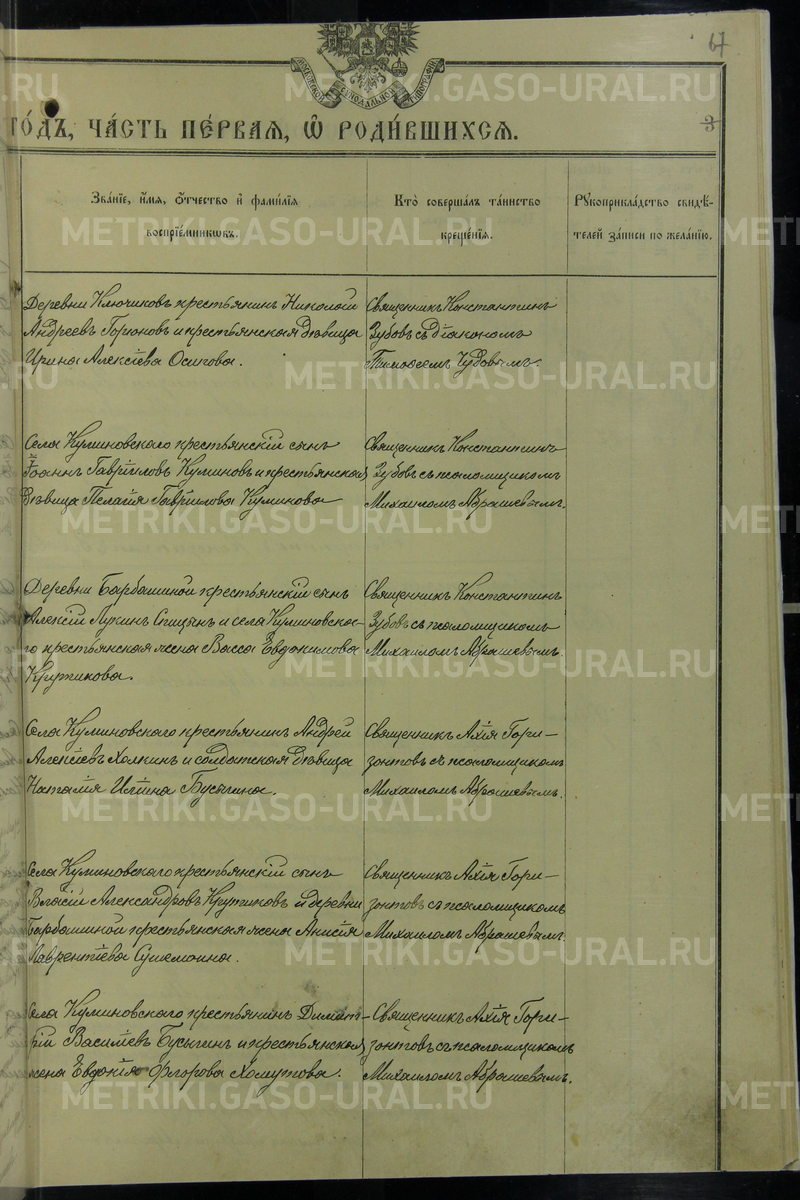 67
МОСКОВСКОЙ СИНОДАЛЬНОЙ ТИПОГРАФІИ
го́дъ, ча́сть пе́рваѧ, ѡ҆ роди́вшихсѧ.
3
Зва́нїе, и҆́мѧ, ѻ҆́тчество и҆ фами́лїѧ
воспрїе́мникѡвъ.
Кто̀ соверша́лъ та́инство
креще́нїѧ.
Рꙋкоприкла́дство свидѣ́-
телей за́писи по жела́нїю.
Деревни Ключиковъ крестьянинъ Николай
Андреевъ Горюновъ и крестьянская дѣвица
Ирина Алексіева Осипова.
Священникъ Константинъ
Зубовъ съ діакономъ
Тимоѳеемъ Чудовымъ.
Села Куминовскаго крестьянскій сынъ
Іоаннъ Гавріиловъ Куминовъ и крестьянская
дѣвица Пелагія Гавріилова Куминова
Священникъ Константинъ
Зубовъ съ псаломщикомъ
Михаиломъ Абрашевымъ.
Деревни Барбашиной крестьянскій сынъ
Алексій Лукинъ Спицынъ и села Куминовска-
го крестьянская жена Васса Евдокимова
Крутикова.
Священникъ Константинъ
Зубовъ съ псаломщикомъ
Михаиломъ Абрашевымъ.
Села Куминовскаго крестьянинъ Андрей
Алексіевъ Холкинъ и солдатская дѣвица
Наталія Иліина Бусыгина.
Священникъ Ахія Гори-
зонтовъ съ псаломщикомъ
Михаиломъ Абрашевымъ.
Села Куминовскаго крестьянскій сынъ
Власій Александровъ Крутиковъ и деревни
Барбашиной крестьянская жена Анисія
Лаврентіева
Священникъ Ахія Гори-
зонтовъ съ псаломщикомъ
Михаиломъ Абрашевымъ.
Села Куминовскаго крестьянинъ Димит-
рій Василіевъ Бусыгинъ и крестьянская
жена Евдокія Флорова Хомутова.
Священникъ Ахія Гори-
зонтовъ съ псаломщикомъ
Михаиломъ Абрашевымъ.
METRIKI.GASO-URAL.RU